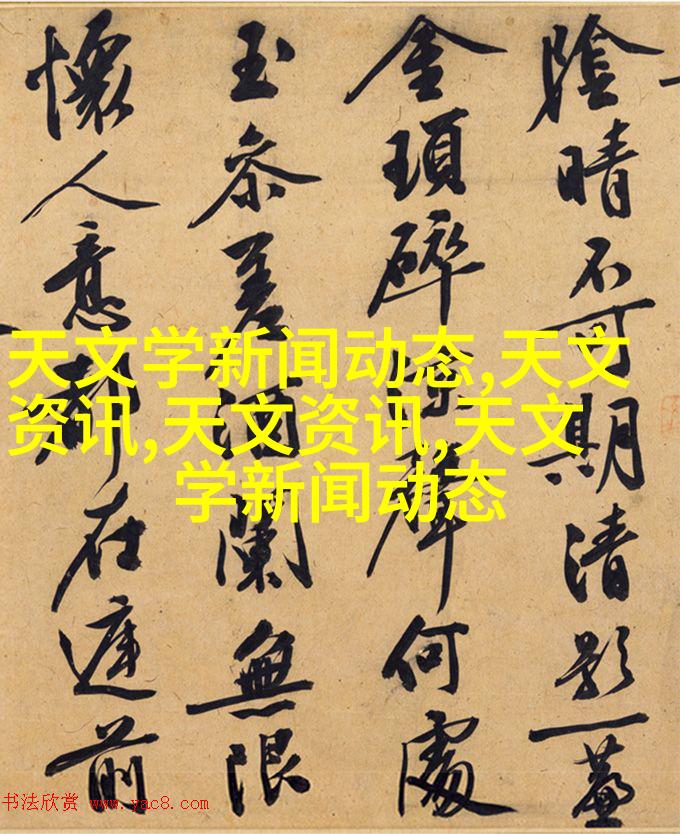 陰晴不可期清影一
金瑣碎聲何處
玉參差酒闌無限
懷人意都在前
天文学新闻动态,天文
资讯,天文资讯,天文
学新闻动态
书法欣赏 www.yac8.com